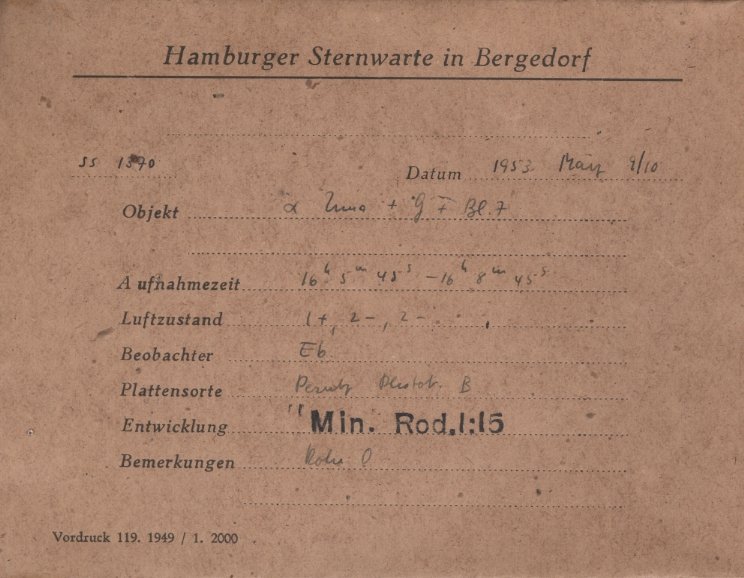 Hamburger Sternwarte in Bergedorf
SS 1370
Datum 1953 März 9/10
Objekt α Uma + GF Bl. 7
Aufnahmezeit 16h 5m 45s – 16h 8m 45s
Luftzustand 1+, 2–, 2–
Beobachter Eb
Plattensorte B
Entwicklung Min. Rod. 1:15
Bemerkungen
Vordruck 119. 1949 / 1. 2000